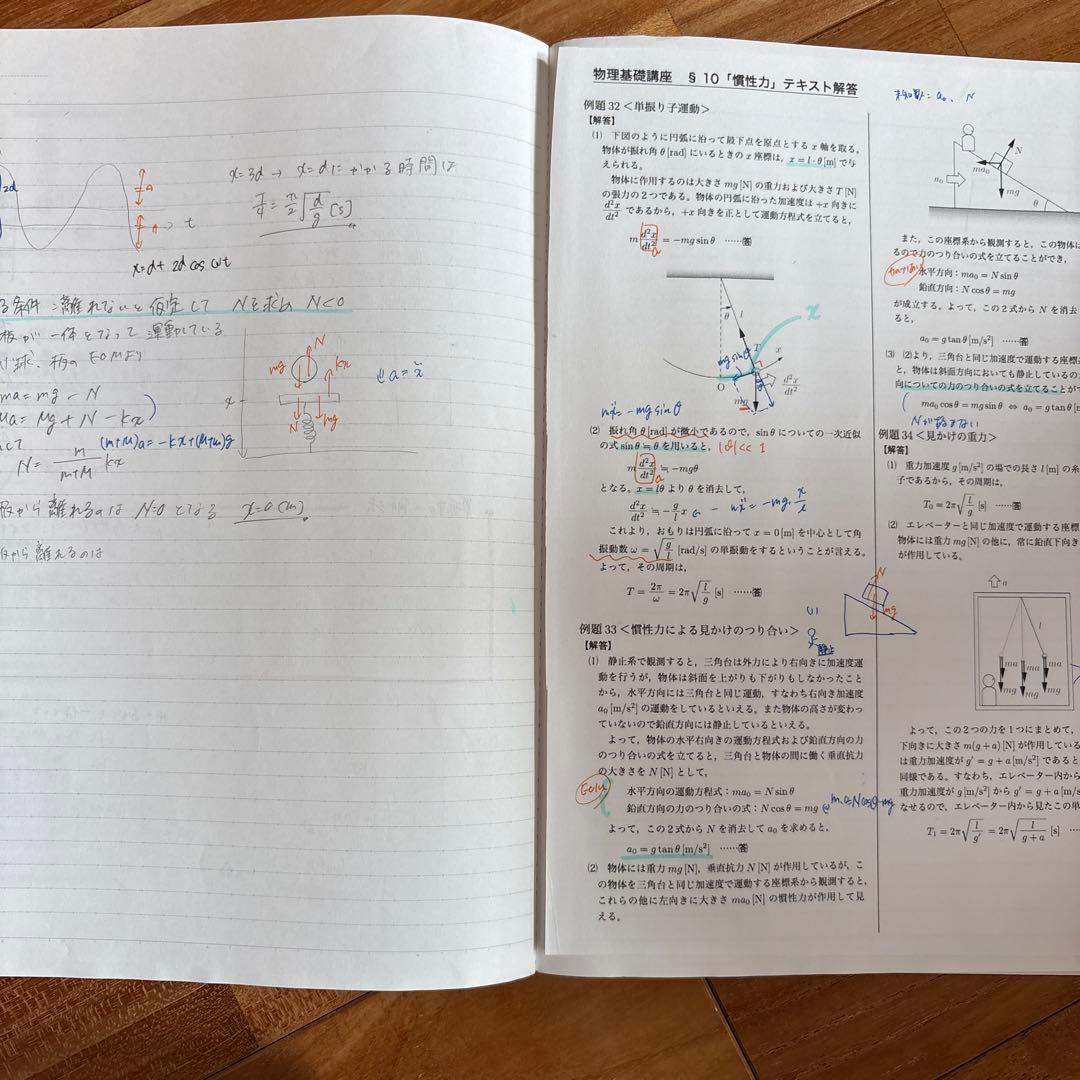 2d
a
a
t
x=d+2d cos ωt
x=3d → x=dにかかる時間は
T/4=π/2√(d/g) [s]
る条件:離れないと仮定して Nを求め N<0
板が一体となって運動している
球、板のEOMより
ma=mg-N
Ma=Mg+N-kx
(m+M)a=-kx+(M+m)g
して
N=m/(m+M) kx
mg
N
kx
N
Mg
x
a=ẍ
板から離れるのは N=0となる x=0(m)
板から離れるのは
物理基礎講座 §10「慣性力」テキスト解答
例題32<単振り子運動>
【解答】
(1) 下図のように円弧に沿って最下点を原点とするx軸を取る。
物体が振れ角θ[rad]にいるときのx座標は,x=l·θ[m]で与
えられる。
物体に作用するのは大きさmg[N]の重力および大きさT[N]
の張力の2つである。物体の円弧に沿った加速度は+x向きに
d²x/dt²であるから,+x向きを正として運動方程式を立てると,
m d²x/dt²=-mg sinθ ……答
a
θ
l
T
x
x
mg sinθ
θ
O
mg
d²x/dt²
mẍ=-mg sinθ
(2) 振れ角θ[rad]が微小であるので,sinθについての一次近似
の式sinθ≒θを用いると,
|θ|<<1
m d²x/dt²≒-mgθ
a
となる。x=lθよりθを消去して,
d²x/dt²≒-g/l x
← mẍ=-mg·x/l
これより,おもりは円弧に沿ってx=0[m]を中心として角
振動数ω=√(g/l) [rad/s]の単振動をするということが言える。
よって,その周期は,
T=2π/ω=2π√(l/g) [s] ……答
N
mg
静止
例題33<慣性力による見かけのつり合い>
【解答】
(1) 静止系で観測すると,三角台は外力により右向きに加速度運
動を行うが,物体は斜面を上がりも下がりもしなかったこと
から,水平方向には三角台と同じ運動,すなわち右向き加速度
a₀[m/s²]の運動をしているといえる。また物体の高さが変わっ
ていないので鉛直方向には静止しているといえる。
よって,物体の水平右向きの運動方程式および鉛直方向の力
のつり合いの式を立てると,三角台と物体の間に働く垂直抗力
の大きさをN[N]として,
EOM
水平方向の運動方程式:ma₀=N sinθ
鉛直方向の力のつり合いの式:N cosθ=mg
m·0=Ncosθ-mg
よって,この2式からNを消去してa₀を求めると,
a₀=g tanθ[m/s²] ……答
(2) 物体には重力mg[N],垂直抗力N[N]が作用しているが,こ
の物体を三角台と同じ加速度で運動する座標系から観測すると,
これらの他に左向きに大きさma₀[N]の慣性力が作用して見
える。
未知数:a₀、N
N
ma₀
a₀
mg
θ
また,この座標系から観測すると,この物体は
るので力のつり合いの式を立てることができ,
水平方向:ma₀=N sinθ
鉛直方向:N cosθ=mg
が成立する。よって,この2式からNを消去
ると,
a₀=g tanθ[m/s²] ……答
(3) (2)より,三角台と同じ加速度で運動する座標
と,物体は斜面方向においても静止しているの
向についての力のつり合いの式を立てることが
ma₀ cosθ=mg sinθ ⇔ a₀=g tanθ[m
例題34<見かけの重力>
【解答】
(1) 重力加速度g[m/s²]の場での長さl[m]の糸
子であるから,その周期は,
T₀=2π√(l/g) [s] ……答
(2) エレベーターと同じ加速度で運動する座標
物体には重力mg[N]の他に,常に鉛直下向き
が作用している。
a
l
ma
ma
ma
mg
mg
mg
よって,この2つの力を1つにまとめて,
下向きに大きさm(g+a)[N]が作用している
は重力加速度がg'=g+a[m/s²]であると
同様である。すなわち,エレベーター内から
重力加速度がg[m/s²]からg'=g+a[m/s
なせるので,エレベーター内から見たこの単
T₁=2π√(l/g')=2π√(l/(g+a)) [s] ……